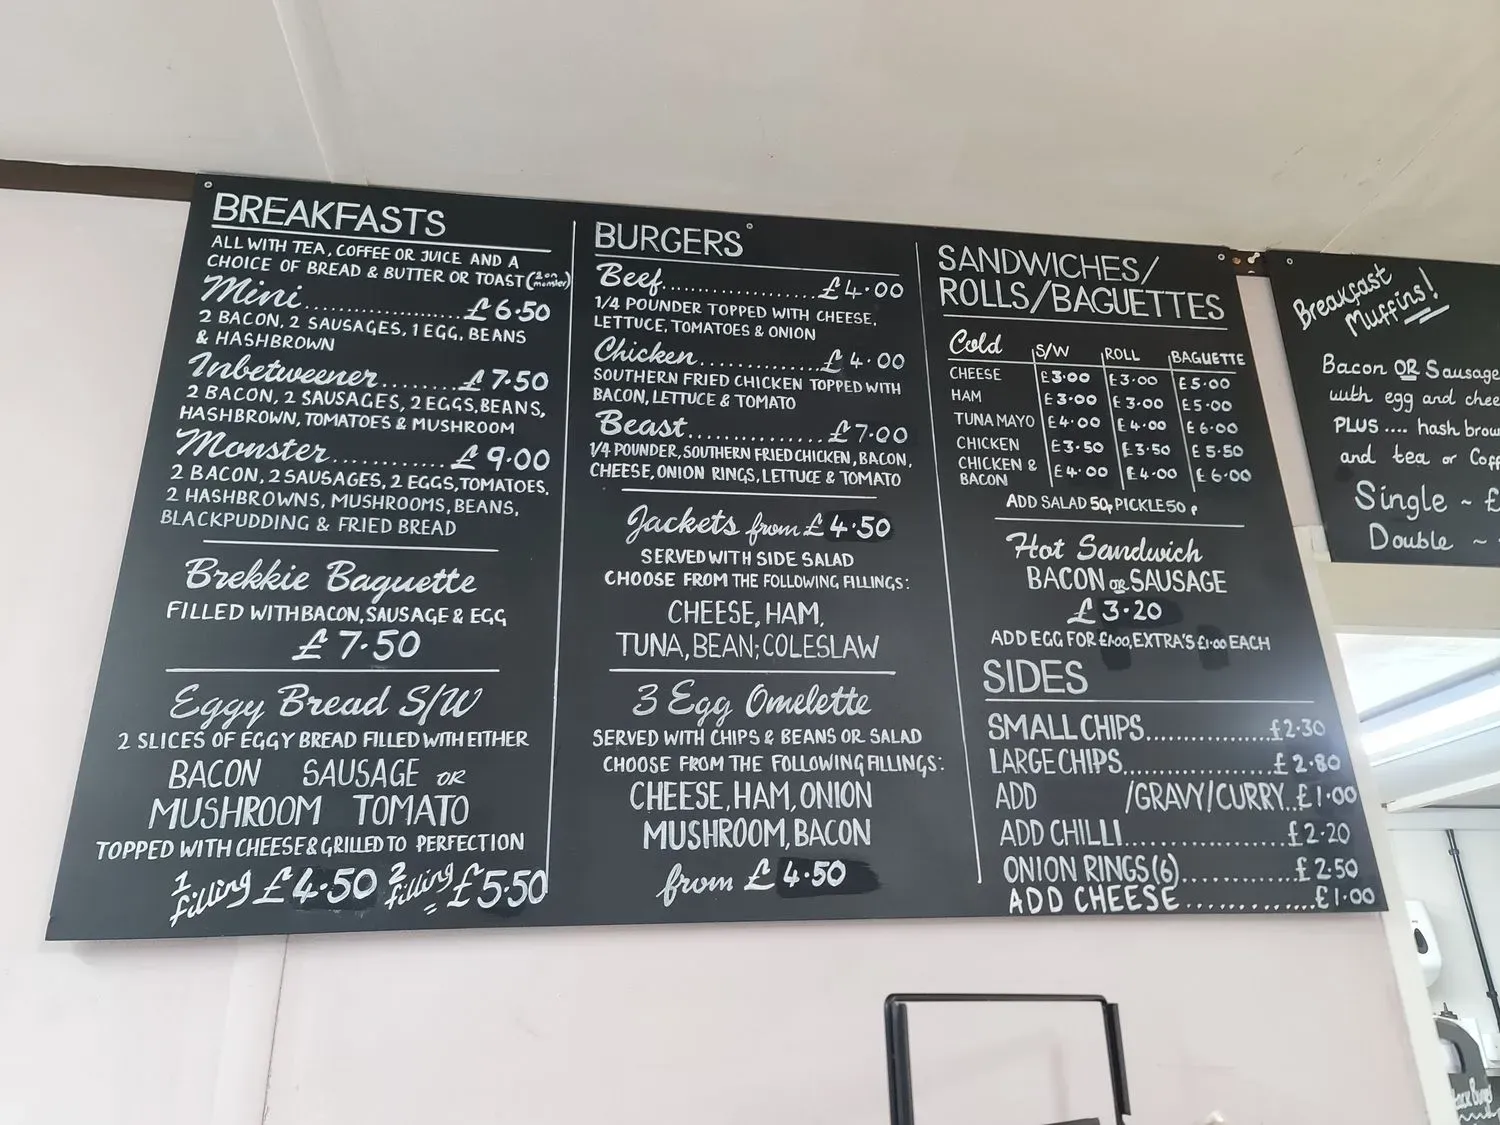 BREAKFASTS
ALL WITH TEA, COFFEE OR JUICE AND A
CHOICE OF BREAD & BUTTER OR TOAST (2 on monster)
Mini..................£6.50
2 BACON, 2 SAUSAGES, 1 EGG, BEANS
& HASHBROWN
Inbetweener........£7.50
2 BACON, 2 SAUSAGES, 2 EGGS, BEANS,
HASHBROWN, TOMATOES & MUSHROOM
Monster............£9.00
2 BACON, 2 SAUSAGES, 2 EGGS, TOMATOES,
2 HASHBROWNS, MUSHROOMS, BEANS,
BLACKPUDDING & FRIED BREAD
Brekkie Baguette
FILLED WITH BACON, SAUSAGE & EGG
£7.50
Eggy Bread S/W
2 SLICES OF EGGY BREAD FILLED WITH EITHER
BACON SAUSAGE OR
MUSHROOM TOMATO
TOPPED WITH CHEESE & GRILLED TO PERFECTION
1 filling £4.50 2 filling £5.50
BURGERS
Beef....................£4.00
1/4 POUNDER TOPPED WITH CHEESE,
LETTUCE, TOMATOES & ONION
Chicken...............£4.00
SOUTHERN FRIED CHICKEN TOPPED WITH
BACON, LETTUCE & TOMATO
Beast..................£7.00
1/4 POUNDER, SOUTHERN FRIED CHICKEN, BACON,
CHEESE, ONION RINGS, LETTUCE & TOMATO
Jackets from £4.50
SERVED WITH SIDE SALAD
CHOOSE FROM THE FOLLOWING FILLINGS:
CHEESE, HAM,
TUNA, BEAN; COLESLAW
3 Egg Omelette
SERVED WITH CHIPS & BEANS OR SALAD
CHOOSE FROM THE FOLLOWING FILLINGS:
CHEESE, HAM, ONION
MUSHROOM, BACON
from £4.50
SANDWICHES/
ROLLS/BAGUETTES
Cold S/W ROLL BAGUETTE
CHEESE £3.00 £3.00 £5.00
HAM £3.00 £3.00 £5.00
TUNA MAYO £4.00 £4.00 £6.00
CHICKEN £3.50 £3.50 £5.50
CHICKEN & BACON £4.00 £4.00 £6.00
ADD SALAD 50p, PICKLE 50p
Hot Sandwich
BACON OR SAUSAGE
£3.20
ADD EGG FOR £1.00, EXTRA'S £1.00 EACH
SIDES
SMALL CHIPS...............£2.30
LARGE CHIPS..................£2.80
ADD /GRAVY/CURRY..£1.00
ADD CHILLI...................£2.20
ONION RINGS (6).............£2.50
ADD CHEESE..............£1.00
Breakfast
Muffins!
Bacon OR Sausage
with egg and
PLUS .... hash
and tea or
Single ~ £
Double ~